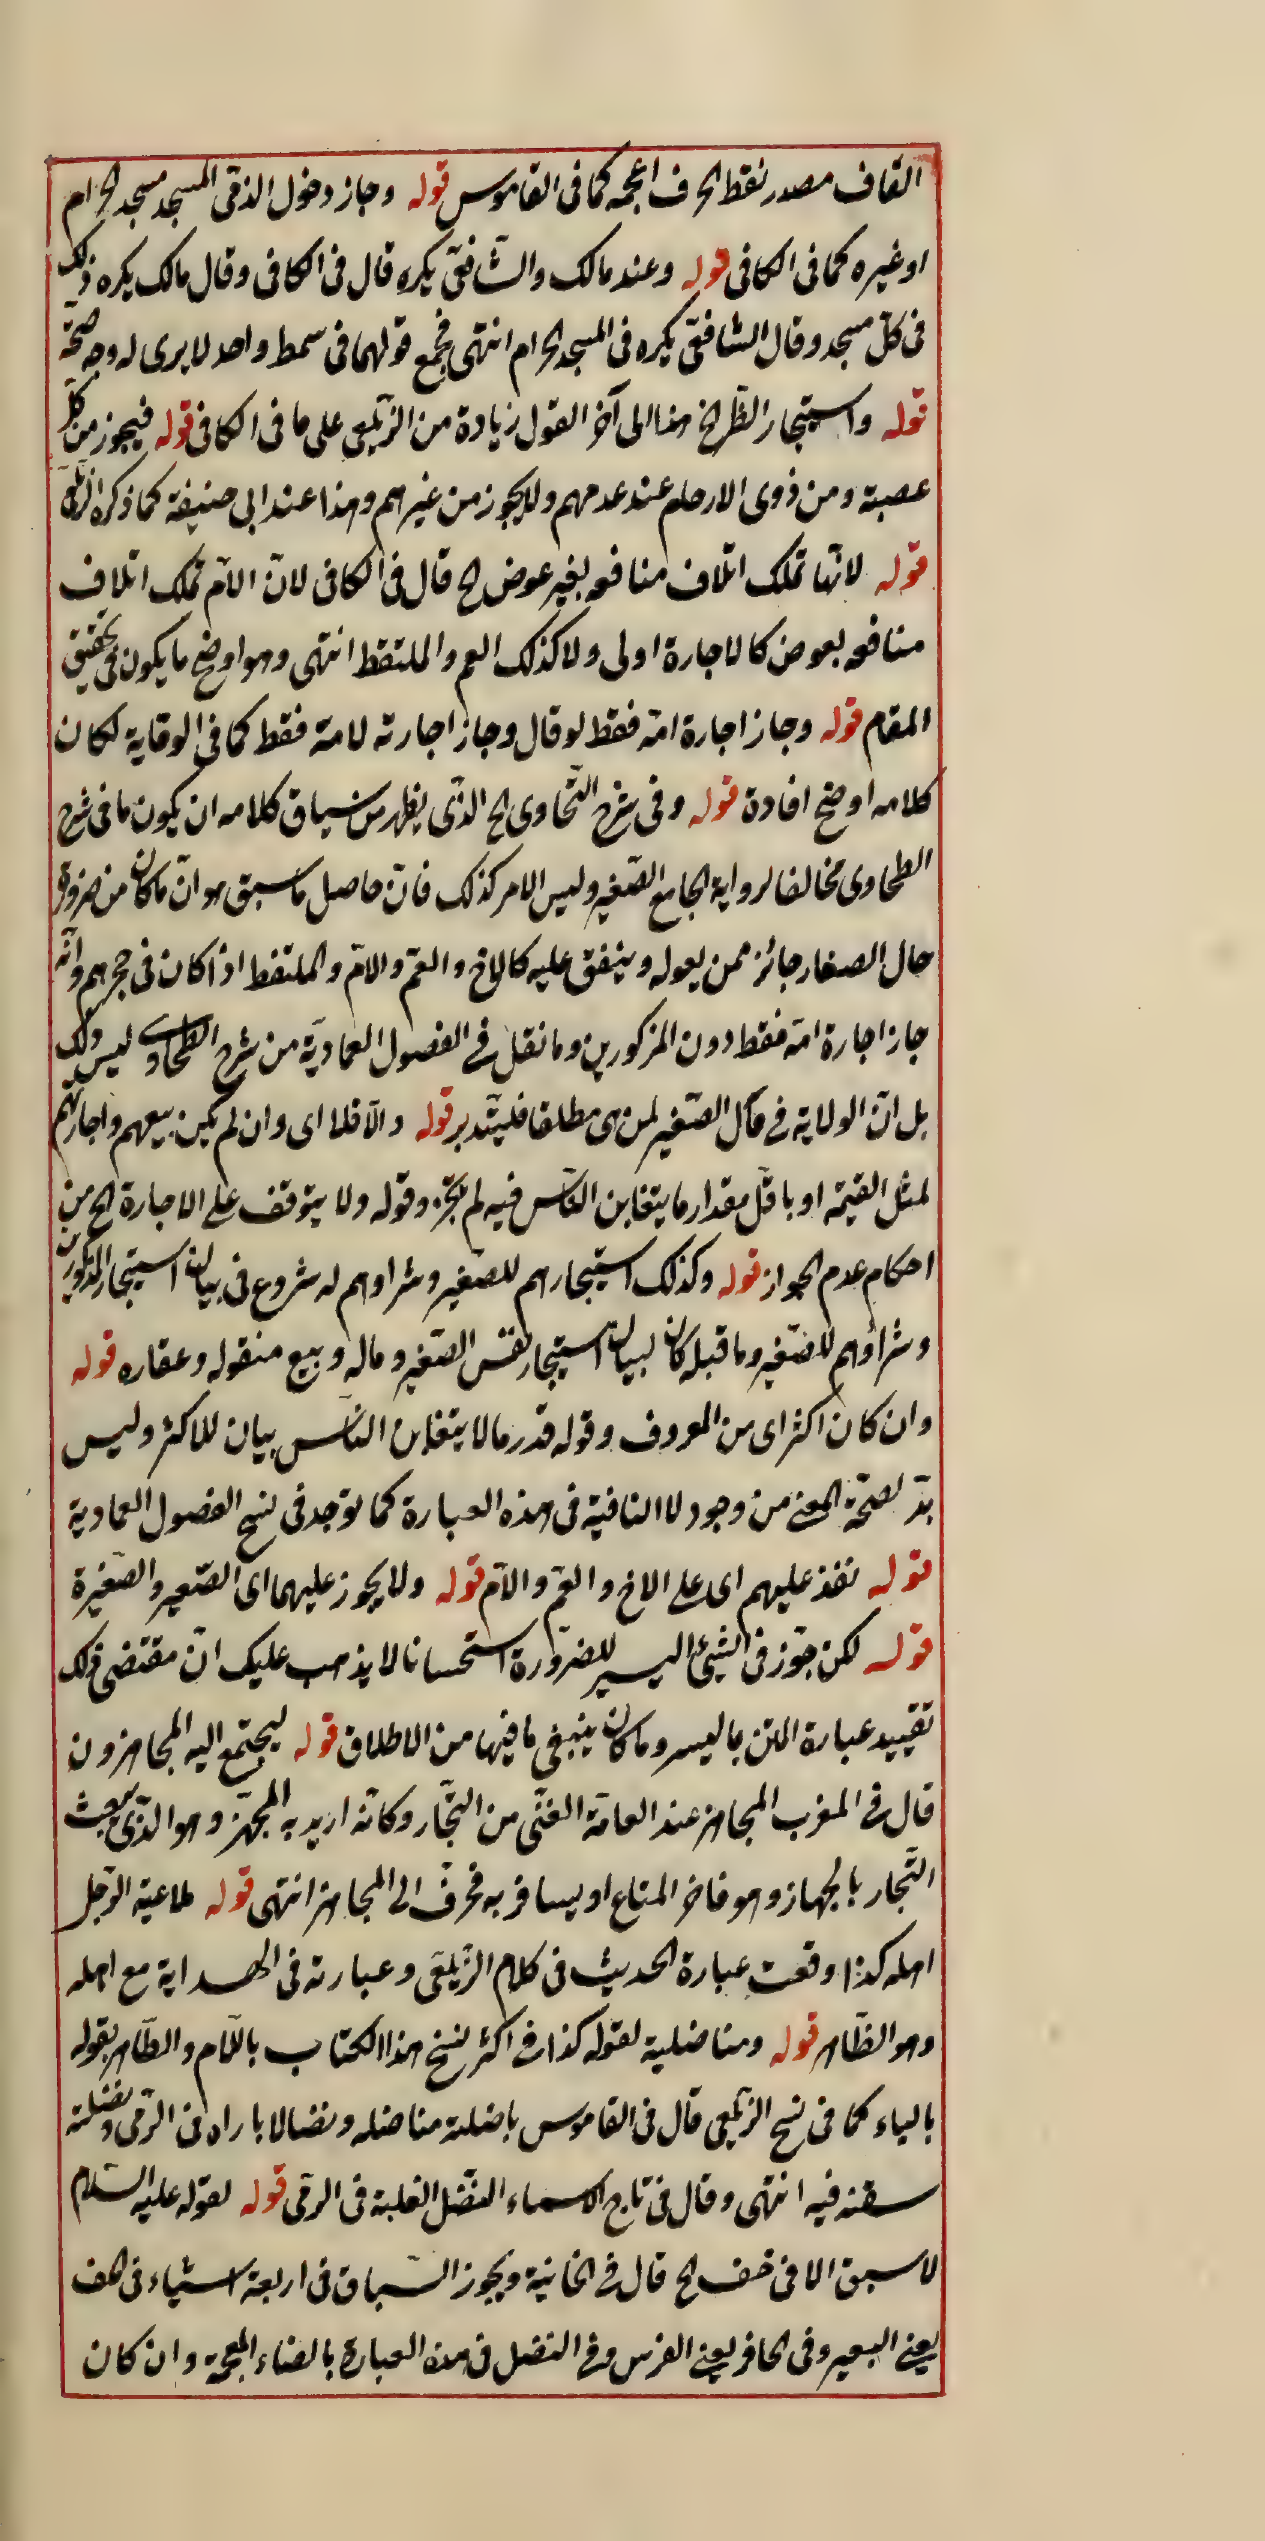 القاف مصدر نقط الحرف اعجمه كما فى القاموس قوله وجاز دخول الذمّى المسجد مسجد الحرام
او غيره كما فى الكافى قوله وعند مالك والشّافعّى يكره قال فى الكافى وقال مالك يكره ذلك
فى كلّ مسجد وقال الشافعّى يكره فى المسجد الحرام انتهى فجمع قولهما فى سمط واحد لا يرى له وجه صحّة
قوله واستيجار الظّر الخ هذا الى آخر القول زيادة من الزّيلعى على ما فى الكافى قوله فيجوز من كلّ
عصبة ومن ذوى الارحام عند عدمهم ولا يجوز من غيرهم وهذا عند ابى حنيفة كما ذكره الزّيلعى
قوله لانّها تملك اتلاف منافعه بغير عوض الخ قال فى الكافى لانّ الامّ تملك اتلاف
منافعه بعوض كالاجارة اولى ولا كذلك العم والملتقط انتهى وهو اوضح ما يكون فى تحقيق
المقام قوله وجاز اجارة امّه فقط لو قال وجاز اجارته لامه فقط كما فى الوقاية لكان
كلامه اوضح افادة قوله وفى شرح الطّحاوى الخ الذّى يظهر من سياق كلامه ان يكون ما فى شرح
الطحاوى مخالفا لرواية الجامع الصّغير وليس الامر كذلك فانّ حاصل ما سبق هو انّ ما كان من ضرورة
حال الصغار جائز ممن يعوله وينفق عليه كالاخ والعمّ والامّ والملتقط اذا كان فى حجرهم وانّه
جاز اجارة امّه فقط دون المذكورين وما نقل فى الفصول العماديّة من شرح الطحاوى ليس ذلك
بل انّ الولاية فى مال الصّغير لمن هى مطلقا فليتّدبر قوله والّا فلا اى وان لم يكن بيعهم واجارتهم
لمثل القيمة او باقلّ مقدار ما يتغابن النّاس فيه لم يجز وقوله ولا يتوقف على الاجارة الخ من
احكام عدم الجواز قوله وكذلك استيجارهم للصّغير وشراوهم له شروع فى بيان استيجار المذكورين
وشراؤهم للصّغير وما قبله كان لبيان استيجار نفس الصّغير وماله وبيع منقوله وعقاره قوله
وان كان اكثر اى من المعروف وقوله قدر ما لا يتغابن النّاس بيان للاكثر وليس
بدّ لصحّة المعنى من وجود لا النافية فى هذه العبارة كما توجد فى نسخ الفصول العمادية
قوله نفذ عليهم اى على الاخ والعمّ والامّ قوله ولا يجوز عليهما اى الصّغير والصّغيرة
قوله لكن جوّز فى الشّيئ اليسير للضرورة استحسانا لا يذهب عليك انّ مقتضى ذلك
تقييد عبارة المتن باليسر وما كان ينبغى ما فيها من الاطلاق قوله ليجتمع اليه المجاهزون
قال فى المغرب المجاهز عند العامّة الغنّى من التّجار وكانّه اريد به المجهّز وهو الذّى يبعث
التّجار بالجهاز وهو فاخر المتاع او يسافر به فحرّف الى المجاهز انتهى قوله ملاعبة الرّجل
اهله كذا وقعت عبارة الحديث فى كلام الزّيلعّى وعبارته فى الهداية مع اهله
وهو الظّاهر قوله ومناضلية لقوله كذا فى اكثر نسخ هذا الكتاب باللّام والظّاهر بقوله
بالباء كما فى نسخ الزّيلعى قال فى القاموس ناضلة مناضله ونضالا باراه فى الرّمى ونضلته
سبقته فيه انتهى وقال فى تاج الاسماء النّضل الغلبة فى الرمى قوله لقوله عليه السّلام
لا سبق الا فى خف الخ قال فى الخانية ويجوز السّباق فى اربعة اشياء فى الخف
يعنى البعير وفى الحافر يعنى الفرس وفى النضل فى هذه العبارة بالضاء المعجمة وان كان